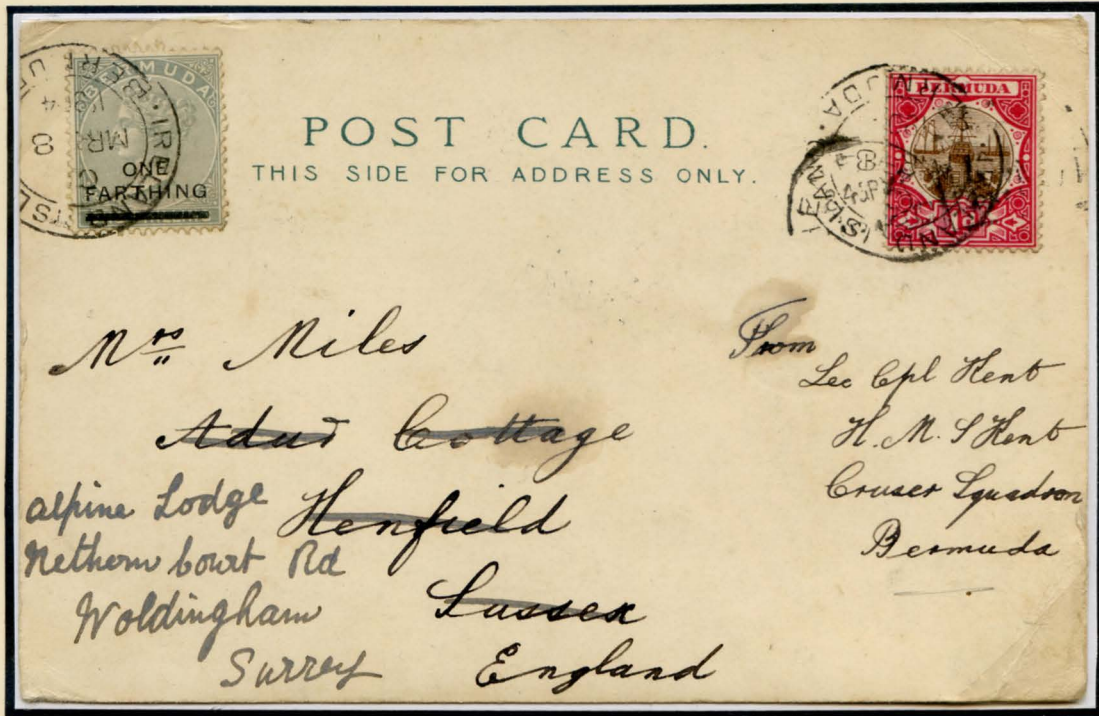 BERMUDA
ONE
FARTHING
POST CARD.
THIS SIDE FOR ADDRESS ONLY.
BERMUDA
1D
Mrs Miles
Cottage
Henfield
Sussex
England
alpine Lodge
Nethern Court Rd
Woldingham
Surrey
From
Lce Cpl Kent
H. M. S Kent
Cruser Squadron
Bermuda